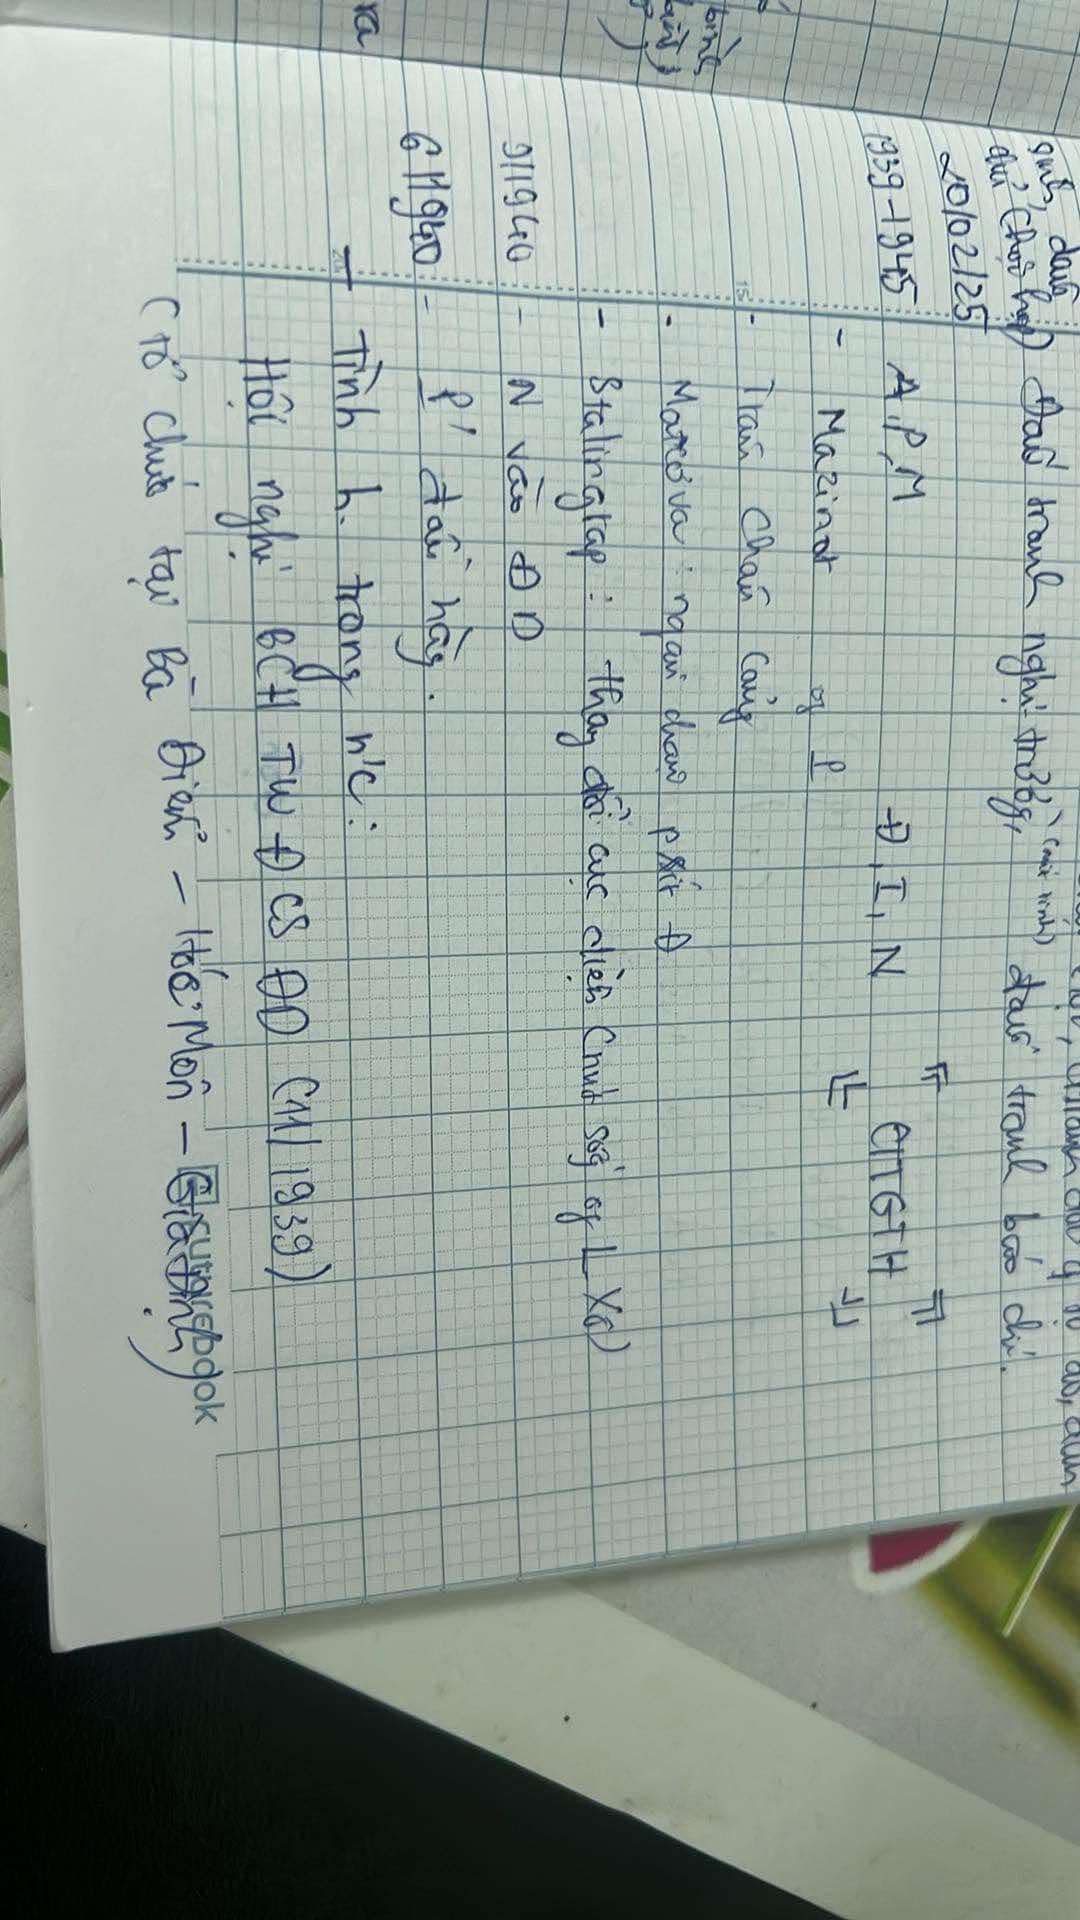 đấu tranh nghị trường, đấu tranh báo chí.
20/02/25
1939-1945 A, P, M Đ, I, N CTTGTH
- Mazinot of P
- Trân Châu Cảng
- Matcơva : ngăn chặn Đ
- Stalingrap : thay đổi cục diện (nút sốg of LXô)
9/1940 - N vào ĐD
6/1940 - P' đầu hàg.
- Tình h. trong n'c:
Hội nghị BCH TW ĐCS ĐD (11/1939)
(tổ chức tại Bà Điểm - Hóc Môn - Gia Định)
15
20
ra